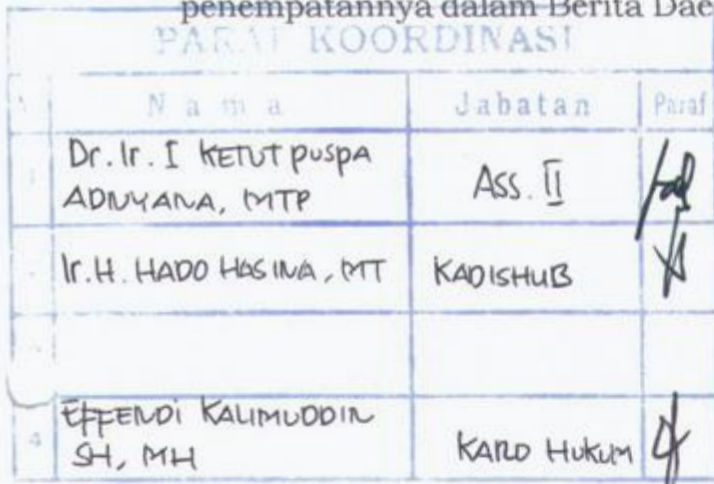 penempatannya dalam Berita Dae
PARAF KOORDINASI
Nama Jabatan Paraf
Dr. Ir. I KETUT PUSPA
ADNYANA, MTP
ASS. II
Ir. H. HADO HASINA, MT KADISHUB
4 EFFENDI KALIMUDDIN
SH, MH
KARO HUKUM